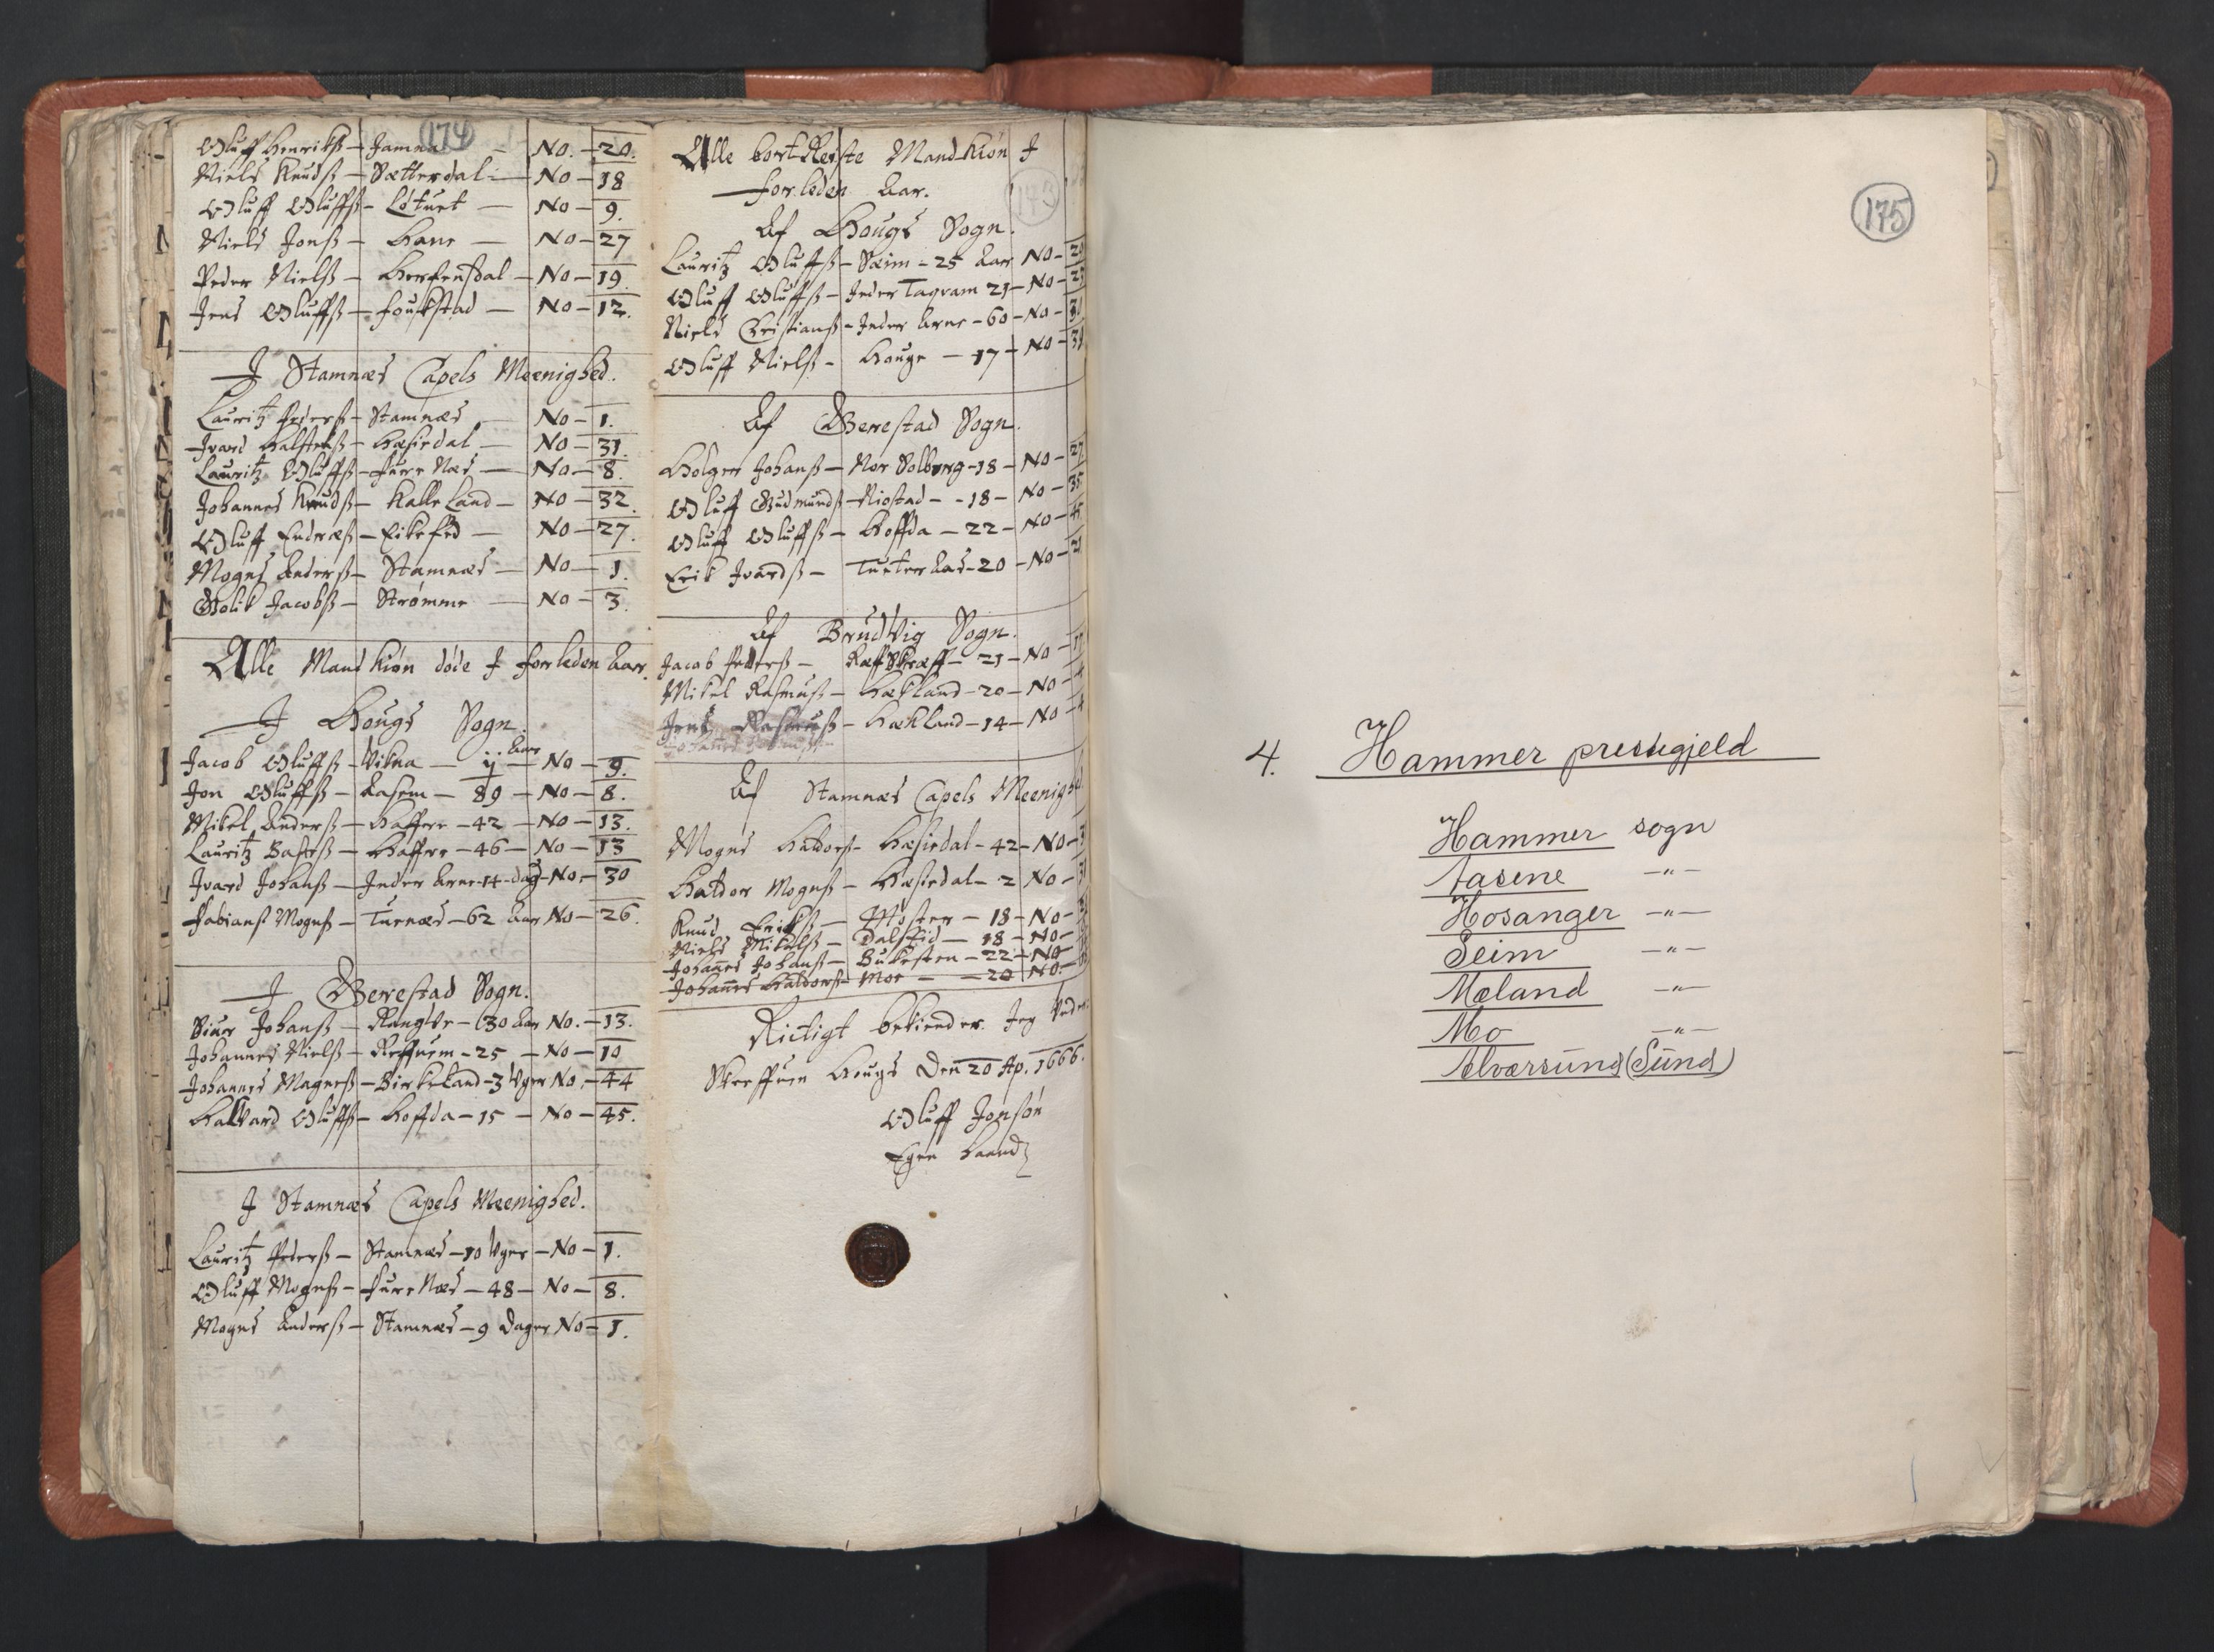 174
Oluff Henrikß – Jamne – No. – 20.
Niels Knudß – Sætterdal – No – 18
Oluff Oluffß – Løtuet – No – 9.
Niels Jonß – Hane – No – 27
Peder Nielß – Herfensdal – No – 19.
Jens Oluffß – foukstad – No – 12.
J Stamnæs Capels Meenighed.
Lauritz Pederß – Stamnæs – No – 1.
Jvard Halstenß – Hæsiedal – No – 31.
Lauritz Oluffß – furr Næs – No – 8.
Johannes Knudß – Kalle Land – No – 32.
Oluff Endræß – Eikefed – No – 27.
Mogns Anderß – Stamnæs – No – 1.
Golik Jacobß – Strømme – No – 3.
Alle Mand Kiøn døde J forleden Aar.
J Hougs Sogn.
Jacob Oluffß – Vikna – Aar No – 9.
Jon Oluffß – Aasem – 89 – No – 8.
Mikel Anderß – Haffre – 42 – No – 13.
Lauritz – Haffre – 46 – No – 13
Jvard Johanß – Jnder Arne – 14 – dag – No – 30
Fabianß Mognß – Turnæs – 62 Aar No – 26.
J Gerestad Sogn.
Siur Johanß – – 30 Aar No. – 13.
Johannes Nielß – Reffuem – 25 – No – 10
Johannes Magneß – Birkeland – 3 Vger No. – 44
Halvard Oluffß – Hoffda – 15 – No – 45.
J Stamnæs Capels Meenighed.
Lauritz Pederß – Stamnæs – 10 Vger – No – 1.
Oluff Mognß – furr Næs – 48 – No – 8.
Mogns Anderß – Stamnæs – 9 Dager No – 1.
Alle bortReiste Mand Kiøn J
forleden Aar.
173
Af Hougs Sogn.
Lauritz Oluffß – Sæim – 25 Aar No –
Oluff Oluffß – Jnder Tagvam 21 – No –
Niels Cristianß – Jnder Arne – 60 – No –
Oluff Nielß – Houge – 17 – No –
Af Gerestad Sogn.
Holger Johanß – Nor Solberg – 18 – No – 27
Oluff Gudmundß – Riostad – 18 – No – 35
Oluff Oluffß – Hoffda – 22 – No – 45
Erik Jvardß – Tuetter Aas – 20 – No – 21
Af Brudvig Sogn.
Jacob Pederß – Ræff Skræff – 21 – No –
Mikel Rasmuß – Hækland – 20 – No – 4
Jens Rasmuß – Hækland – 14 – No – 4
Af Stamnæs Capels Meenighed.
Mogns Haldorß – Hæsiedal – 42 – No –
Haldor Mognß – Hæsiedal – 2 No – 31
Knud Erikß – Møster – 18 – No –
Niels Mikelß – Dalseid – 18 – No –
Johannes Johanß – Bukesten – 22 – No
Johannes Haldorß – Moe – 20 No.
Rictigt bekiender Jeg Vnder
Skreffuen Hougs Den 20 Ap. 1666.
Oluff Jonsøn
Egen Haand
175
4. Hammer prestegjeld
Hammer sogn
Aasene —"—
Hosanger —"—
Seim —"—
Mæland —"—
Mo —"—
Alværsund (Sund)